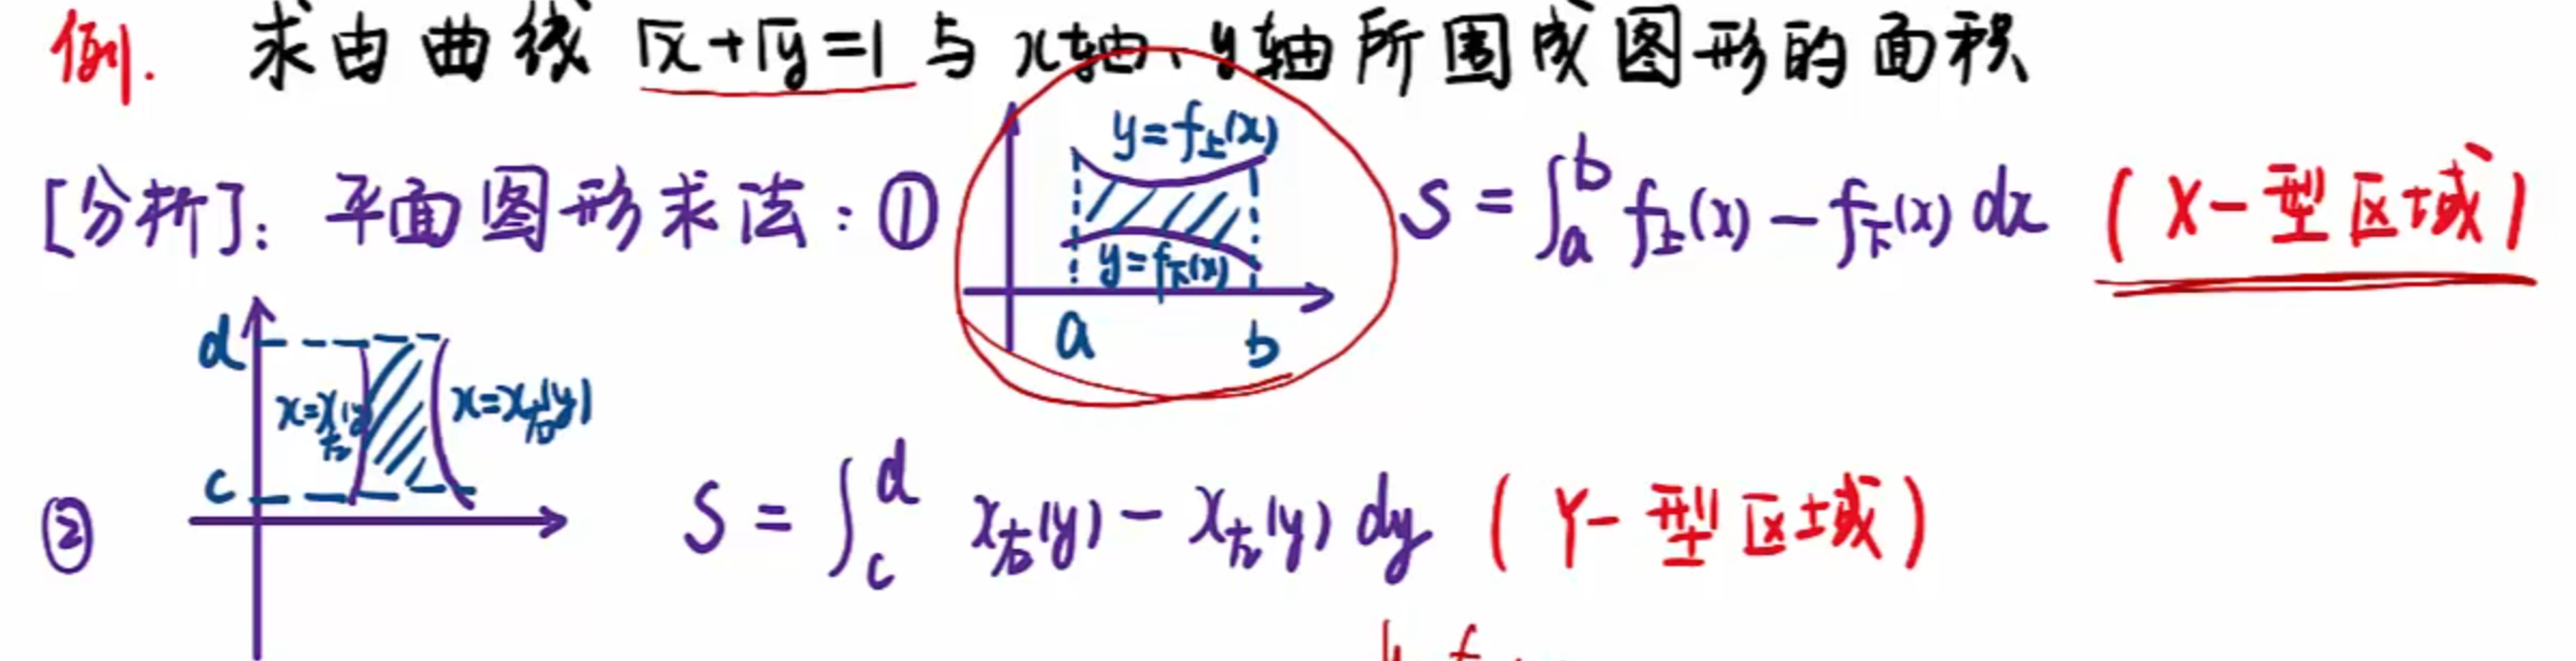 例. 求由曲线 √x+√y=1 与x轴、y轴所围成图形的面积
[分析]: 平面图形求法: ①
y=f上(x)
y=f下(x)
a b
S=∫_a^b f上(x)-f下(x) dx (X-型区域)
②
d
x=x左(y) x=x右(y)
c
S=∫_c^d x右(y)-x左(y) dy (Y-型区域)